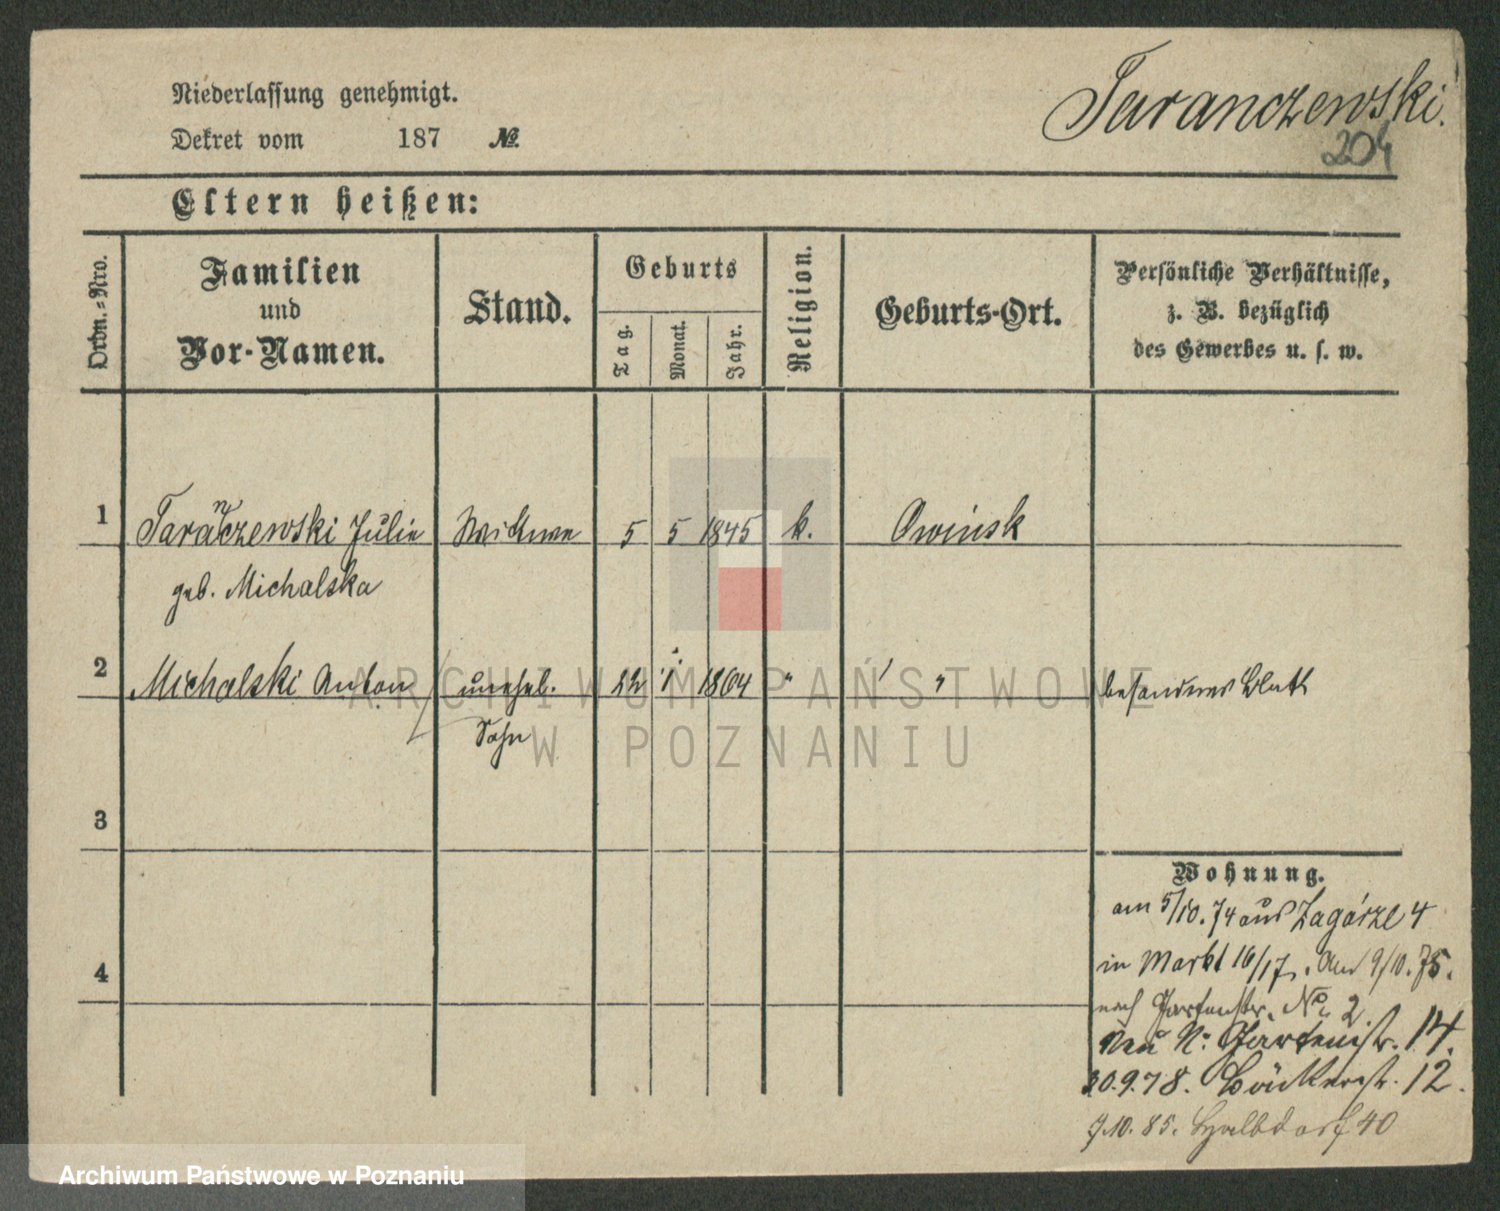 Niederlassung genehmigt.
Taranczewski.
Dekret vom 187 №
204
Eltern heißen:
Ordn.-Nro.
Familien
und
Vor-Namen.
Stand.
Geburts
Tag.
Monat.
Jahr.
Religion.
Geburts-Ort.
Persönliche Verhältnisse,
z. B. bezüglich
des Gewerbes u. s. w.
1 Taranczewski Julie Wittwe 5 5 1845 k. Owinsk
geb. Michalska
2 Michalski Anton unehel. 22 1 1864 " " " besonderes Blatt
Sohn
3
4
Wohnung.
am 5/10. 74 aus Zagórze 4
in Markt 16/17. Am 9/10. 75.
nach Gartenstr. No 2
Neu N: Gartenstr. 14.
30.9.78. Bäckerstr. 12.
7.10.85. Halbdorf 40
ARCHIWUM PAŃSTWOWE
W POZNANIU
Archiwum Państwowe w Poznaniu